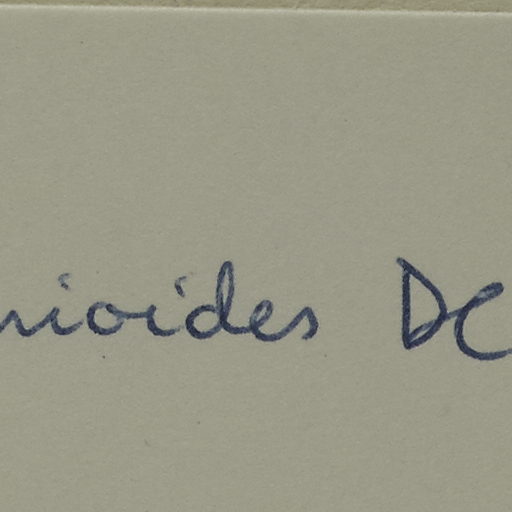 nioides DC